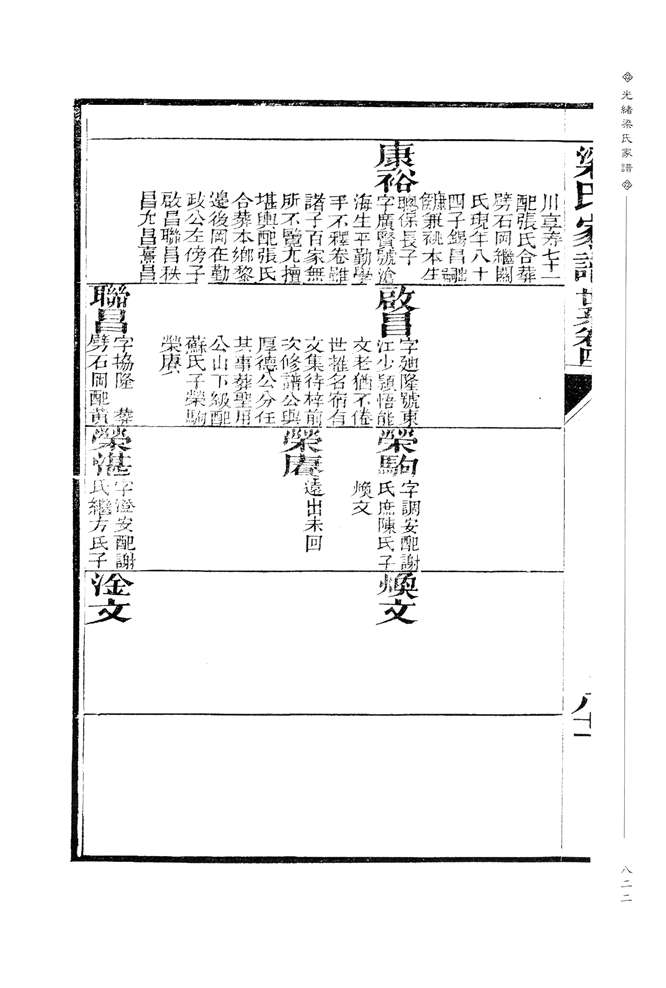 光緒梁氏家譜
梁氏家譜世系卷四
八十一
川享壽七十一
配張氏合葬
劈石岡繼關
氏現年八十
四子錫昌
兼祧本生
康裕
聰保長子
字廣賢號滄
海生平勤學
手不釋卷雖
諸子百家無
所不覽尤擅
堪輿配張氏
合葬本鄉黎
邊後岡在勤
政公左傍子
啟昌聯昌秩
昌允昌熹昌
啟昌
字廸隆號東
江少穎悟能
文老猶不倦
世稱名宿有
文集待梓前
次修譜公與
厚德公分任
其事葬聖用
公山下級配
蘇氏子榮駒
榮賡
聯昌
字協隆 葬
劈石岡配黃
榮駒
字調安配謝
氏庶陳氏子
煥文
榮賡
遠出未回
榮湛
字澄安配謝
氏繼方氏子
煥文
淦文
八二二